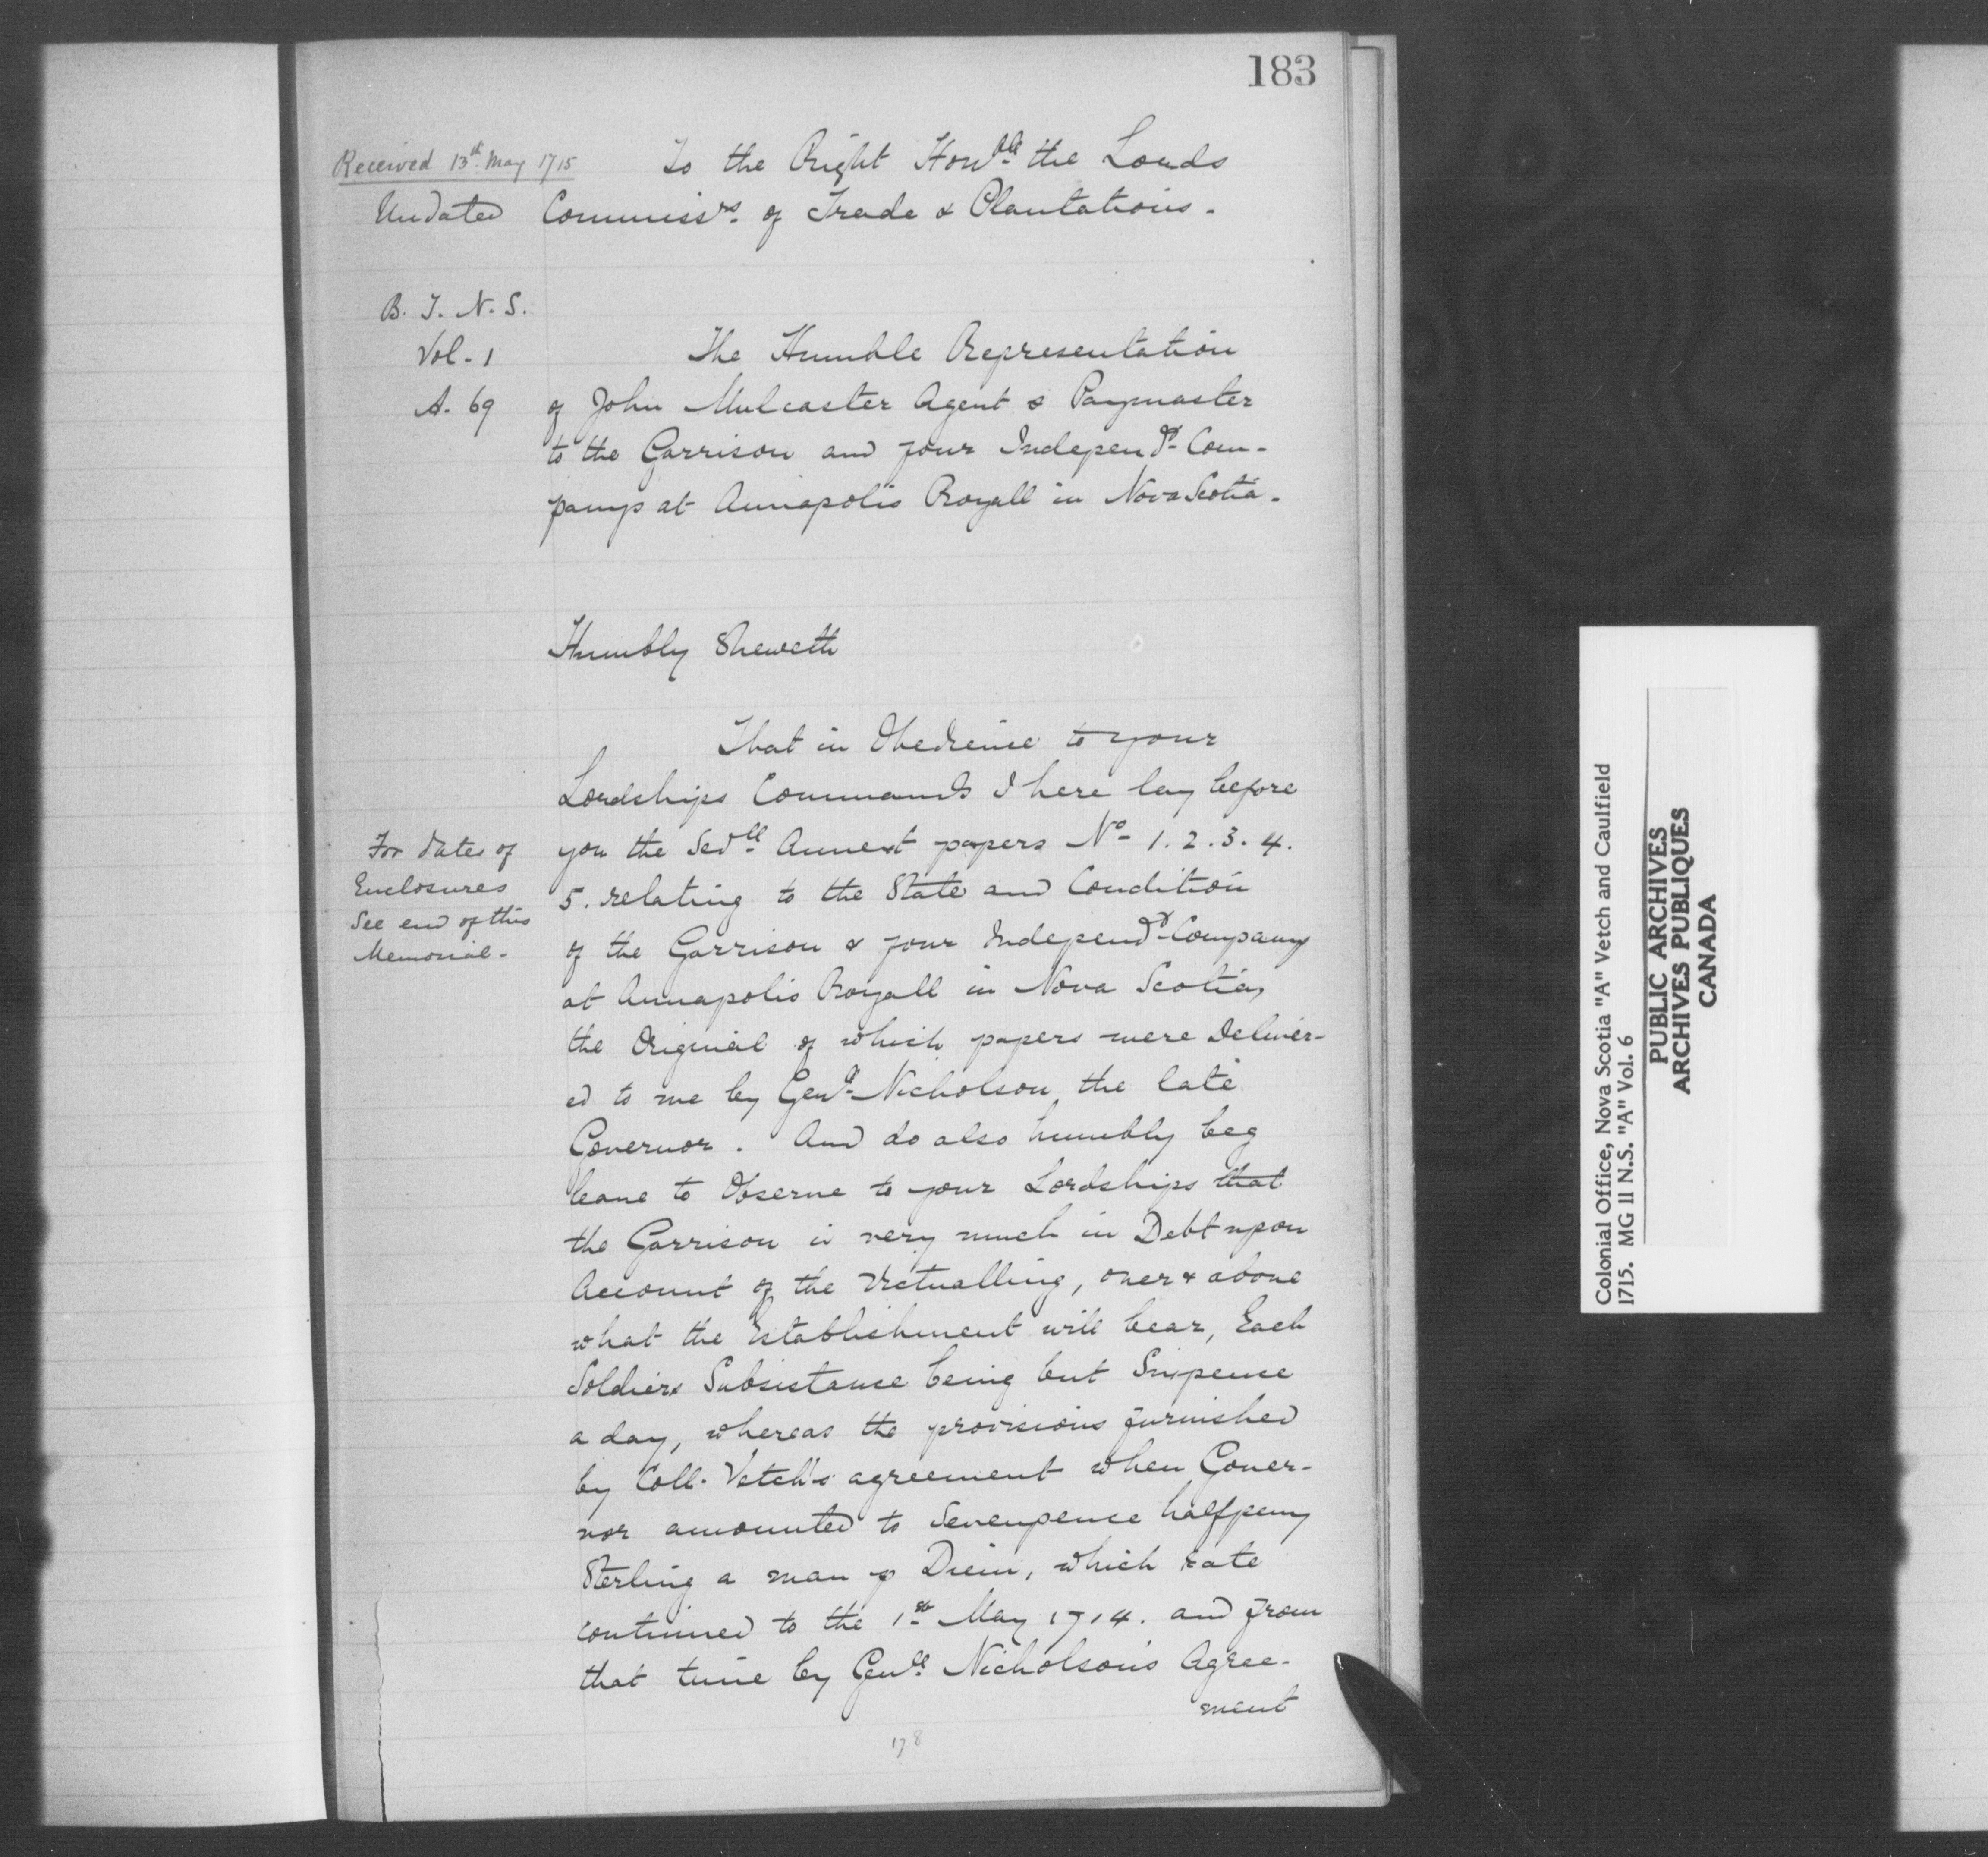 183
Received 13th May 1715
To the Right Honble the Lords
Undated
Commissrs of Trade & Plantations.
B. T. N. S.
Vol. 1
A. 69
The Humble Representation
of John Mulcaster Agent & Paymaster
to the Garrison and four Independt Com-
panys at Annapolis Royall in Nova Scotia.
Humbly Sheweth
That in Obedience to your
Lordships Commands I here lay before
For dates of
Enclosures
See end of this
Memorial.
you the Sevll Annext papers No 1. 2. 3. 4.
5. relating to the State and Condition
of the Garrison & four Independt Companys
at Annapolis Royall in Nova Scotia,
the Original of which papers were Deliver-
ed to me by Genll Nicholson the late
Governor. And do also humbly beg
leave to Observe to your Lordships that
the Garrison is very much in Debt upon
Account of the Victualling, over & above
what the Establishment will bear, Each
Soldiers Subsistance being but Sixpence
a day, whereas the provisions furnished
by Coll. Vetch's agreement when Gover-
nor amounted to Sevenpence halfpenny
Sterling a man p Diem, which rate
continued to the 1st May 1714. and from
that time by Genll Nicholson's Agree-
ment
178
Colonial Office, Nova Scotia "A" Vetch and Caulfield
1715. MG II N.S. "A" Vol. 6
PUBLIC ARCHIVES
ARCHIVES PUBLIQUES
CANADA